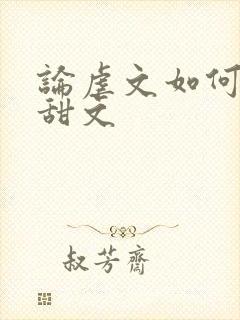 論虐文如何
甜文
叔芳齋